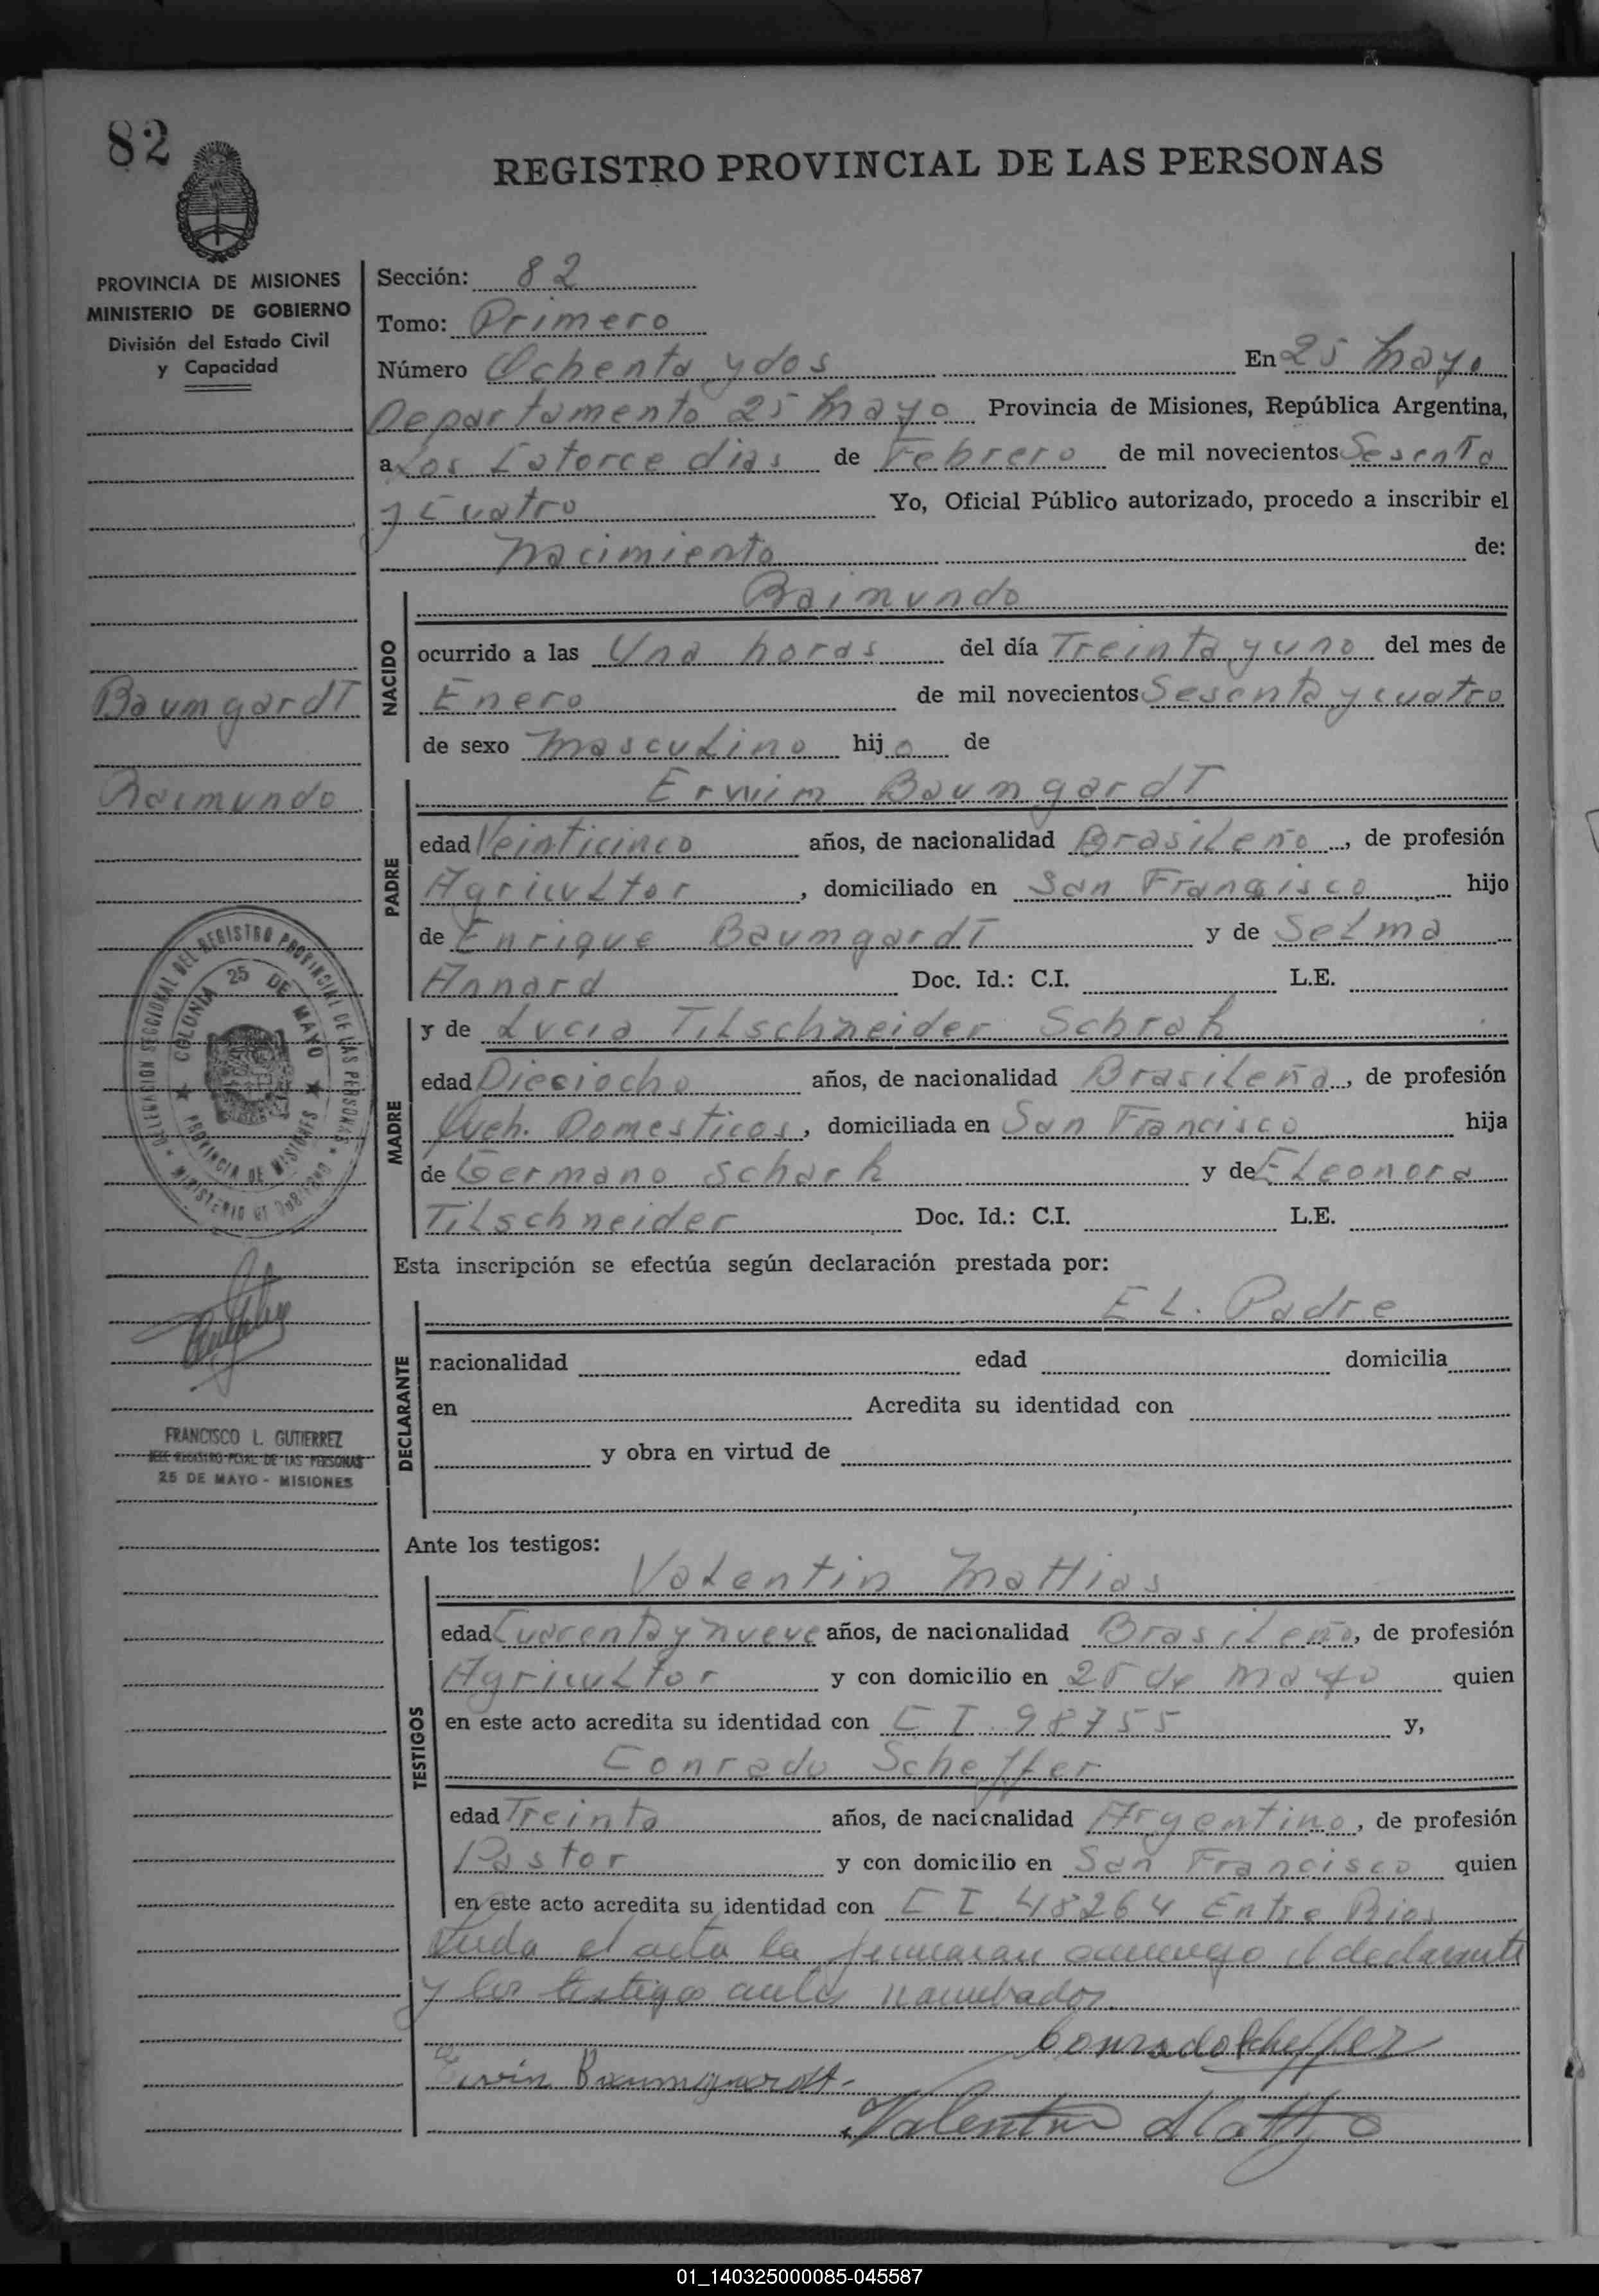 82
REGISTRO PROVINCIAL DE LAS PERSONAS
PROVINCIA DE MISIONES
MINISTERIO DE GOBIERNO
División del Estado Civil
y Capacidad
Sección: 82
Tomo: Primero
Número Ochenta y dos En 25 Mayo
Departamento 25 Mayo Provincia de Misiones, República Argentina,
a Los Catorce dias de Febrero de mil novecientos Sesenta
y Cuatro Yo, Oficial Público autorizado, procedo a inscribir el
Nacimiento de:
NACIDO
Raimundo
ocurrido a las Una horas del día Treinta y uno del mes de
Baumgardt
Enero de mil novecientos Sesenta y cuatro
de sexo Masculino hijo de
Raimundo
PADRE
Erwim Baumgardt
edad Veinticinco años, de nacionalidad Brasileño, de profesión
Agricultor, domiciliado en San Francisco hijo
de Enrique Baumgardt y de Selma
Annard Doc. Id.: C.I. L.E.
MADRE
y de Lucia Tilschneider Schrak
edad Dieciocho años, de nacionalidad Brasileña, de profesión
Queh. Domesticos, domiciliada en San Francisco hija
de Germano Schark y de Eleonora
Tilschneider Doc. Id.: C.I. L.E.
DELEGACION SECCIONAL DEL REGISTRO PROVINCIAL DE LAS PERSONAS
MINISTERIO DE GOBIERNO
COLONIA 25 DE MAYO
PROVINCIA DE MISIONES
Esta inscripción se efectúa según declaración prestada por:
DECLARANTE
EL. Padre
nacionalidad edad domicilia
en Acredita su identidad con
y obra en virtud de
FRANCISCO L. GUTIERREZ
JEFE REGISTRO PCIAL. DE LAS PERSONAS
25 DE MAYO - MISIONES
Ante los testigos:
TESTIGOS
Valentin Mattias
edad Cuarenta y nueve años, de nacionalidad Brasileño, de profesión
Agricultor y con domicilio en 25 de Mayo quien
en este acto acredita su identidad con C I 98755 y,
Conrado Scheffer
edad Treinta años, de nacionalidad Argentino, de profesión
Pastor y con domicilio en San Francisco quien
en este acto acredita su identidad con C I 48264 Entre Rios
Leida el acta la firmaran conmigo el declarante
y los testigos antes nombrados.
Conrado Scheffer
Erwin Baumgardt.
Valentin
01_140325000085-045587